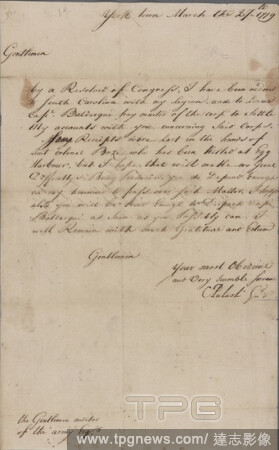 York Town March the 27th 1779
Gentlemen
by a Resolut of Congress, I have been
South Carolina with my legion and to Leave
Capt. Baldesqui pay master of the corp to Settle
My accounts with you concerning Said Corps.
Receipts were lost in the hands of
Colonel who has been Killed at Egg
Harbour, but I hope that will make no Great
Difficulty
in my manner to pass over Matter, I hope
also you will be kind Enough to Dispach Cap
Baldesqui as Soon as you Possibly can I
will Remain with much Gratitude and Esteem
Gentlemen
Your most Obedient
and Very humble
C Pulaski Gl
the Gentlemen auditor
of the army
TPG
www.tpgnews.com | 達志影像